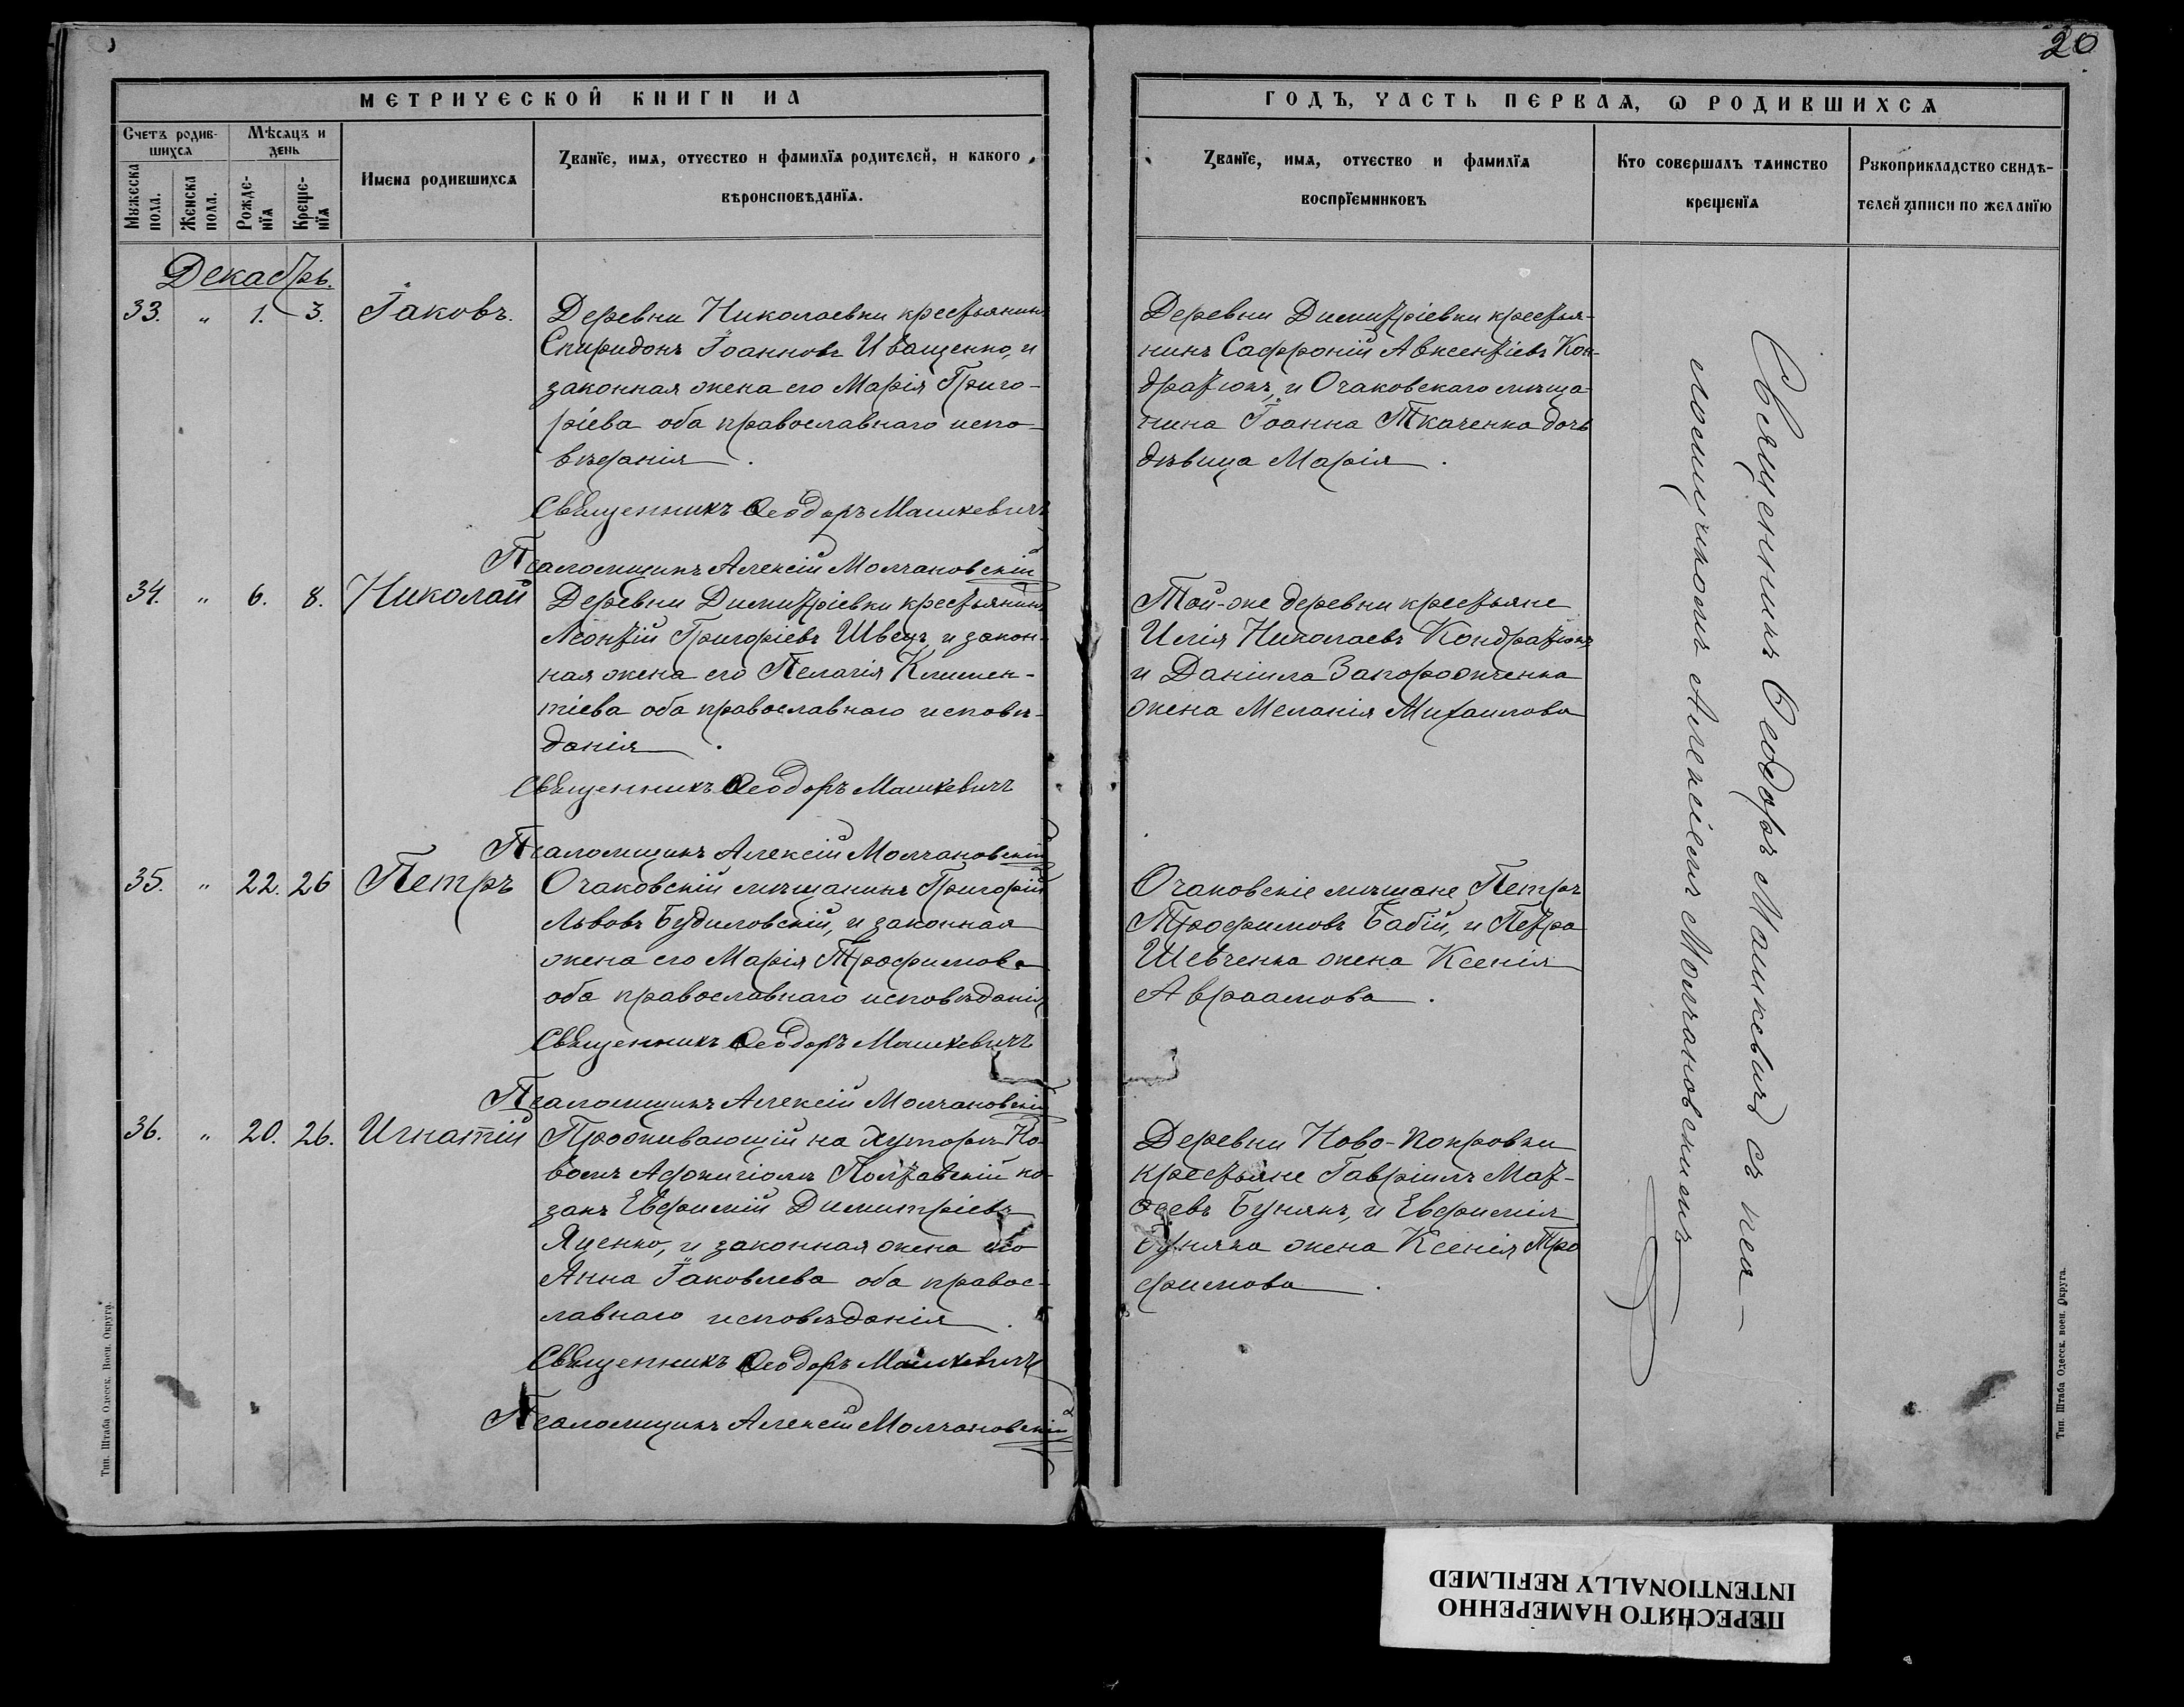 20
МЕТРИЧЕСКОЙ КНИГИ НА
ГОДЪ, ЧАСТЬ ПЕРВАЯ, Ѡ РОДИВШИХСЯ
Счетъ родив-
шихся
Мѣсяцъ и
день
Мужеска
пола.
Женска
пола.
Рожде-
нїя
Креще-
нїя
Имена родившихся
Званїе, имя, отчество и фамилїя родителей, и какого
вѣроисповѣданїя.
Званїе, имя, отчество и фамилїя
воспрїемниковъ
Кто совершалъ таинство
крещенїя
Рукоприкладство свидѣ-
телей записи по желанїю
Декабрь.
33. " 1. 3. Іаковъ.
Деревни Николаевки крестьянинъ
Спиридонъ Іоанновъ Иващенко, и
законная жена его Марія Григо-
ріева оба православнаго испо-
вѣданія.
Священникъ Ѳеодоръ Машкевичъ
Псаломщикъ Алексій Молчановскій
Деревни Димитріевки крестья-
нинъ Саффроній Авксентіевъ Кон-
дратюкъ, и Очаковскаго мѣща-
нина Іоанна Ткаченка дочь
дѣвица Марія.
34. " 6. 8. Николай
Деревни Димитріевки крестьянинъ
Леонтій Григоріевъ Швецъ, и закон-
ная жена его Пелагія Климен-
тіева оба православнаго исповѣ-
данія.
Священникъ Ѳеодоръ Машкевичъ
Псаломщикъ Алексій Молчановскій
Той-же деревни крестьяне
Илія Николаевъ Кондратюкъ
и Даніила Загородченка
жена Меланія Михаилова
35. " 22. 26 Петръ
Очаковскій мѣщанинъ Григорій
Львовъ Будиловскій, и законная
жена его Марія Трофимова
оба православнаго исповѣданія
Священникъ Ѳеодоръ Машкевичъ
Псаломщикъ Алексій Молчановскій
Очаковскіе мѣщане Петръ
Трофимовъ Бабій, и Петра
Шевченка жена Ксенія
Авраамова.
36. " 20. 26. Игнатій
Проживающій на хуторѣ Но-
вомъ Полтавскій ко-
закъ Евфимій Димитріевъ
Яценко, и законная жена его
Анна Іаковлева оба правос-
лавнаго исповѣданія.
Священникъ Ѳеодоръ Машкевичъ
Псаломщикъ Алексій Молчановскій
Деревни Ново-Покровки
крестьяне Гавріилъ Мат-
ѳеевъ Бунякъ, и Евфимія
Буняка жена Ксенія Тро
фимова.
Священникъ Ѳеодоръ Машкевичъ съ пса-
ломщикомъ Алексіемъ Молчановскимъ
Тип. Штаба Одесск. Воен. Округа.
Тип. Штаба Одесск. воен. Округа.
ПЕРЕСНЯТО НАМЕРЕННО
INTENTIONALLY REFILMED